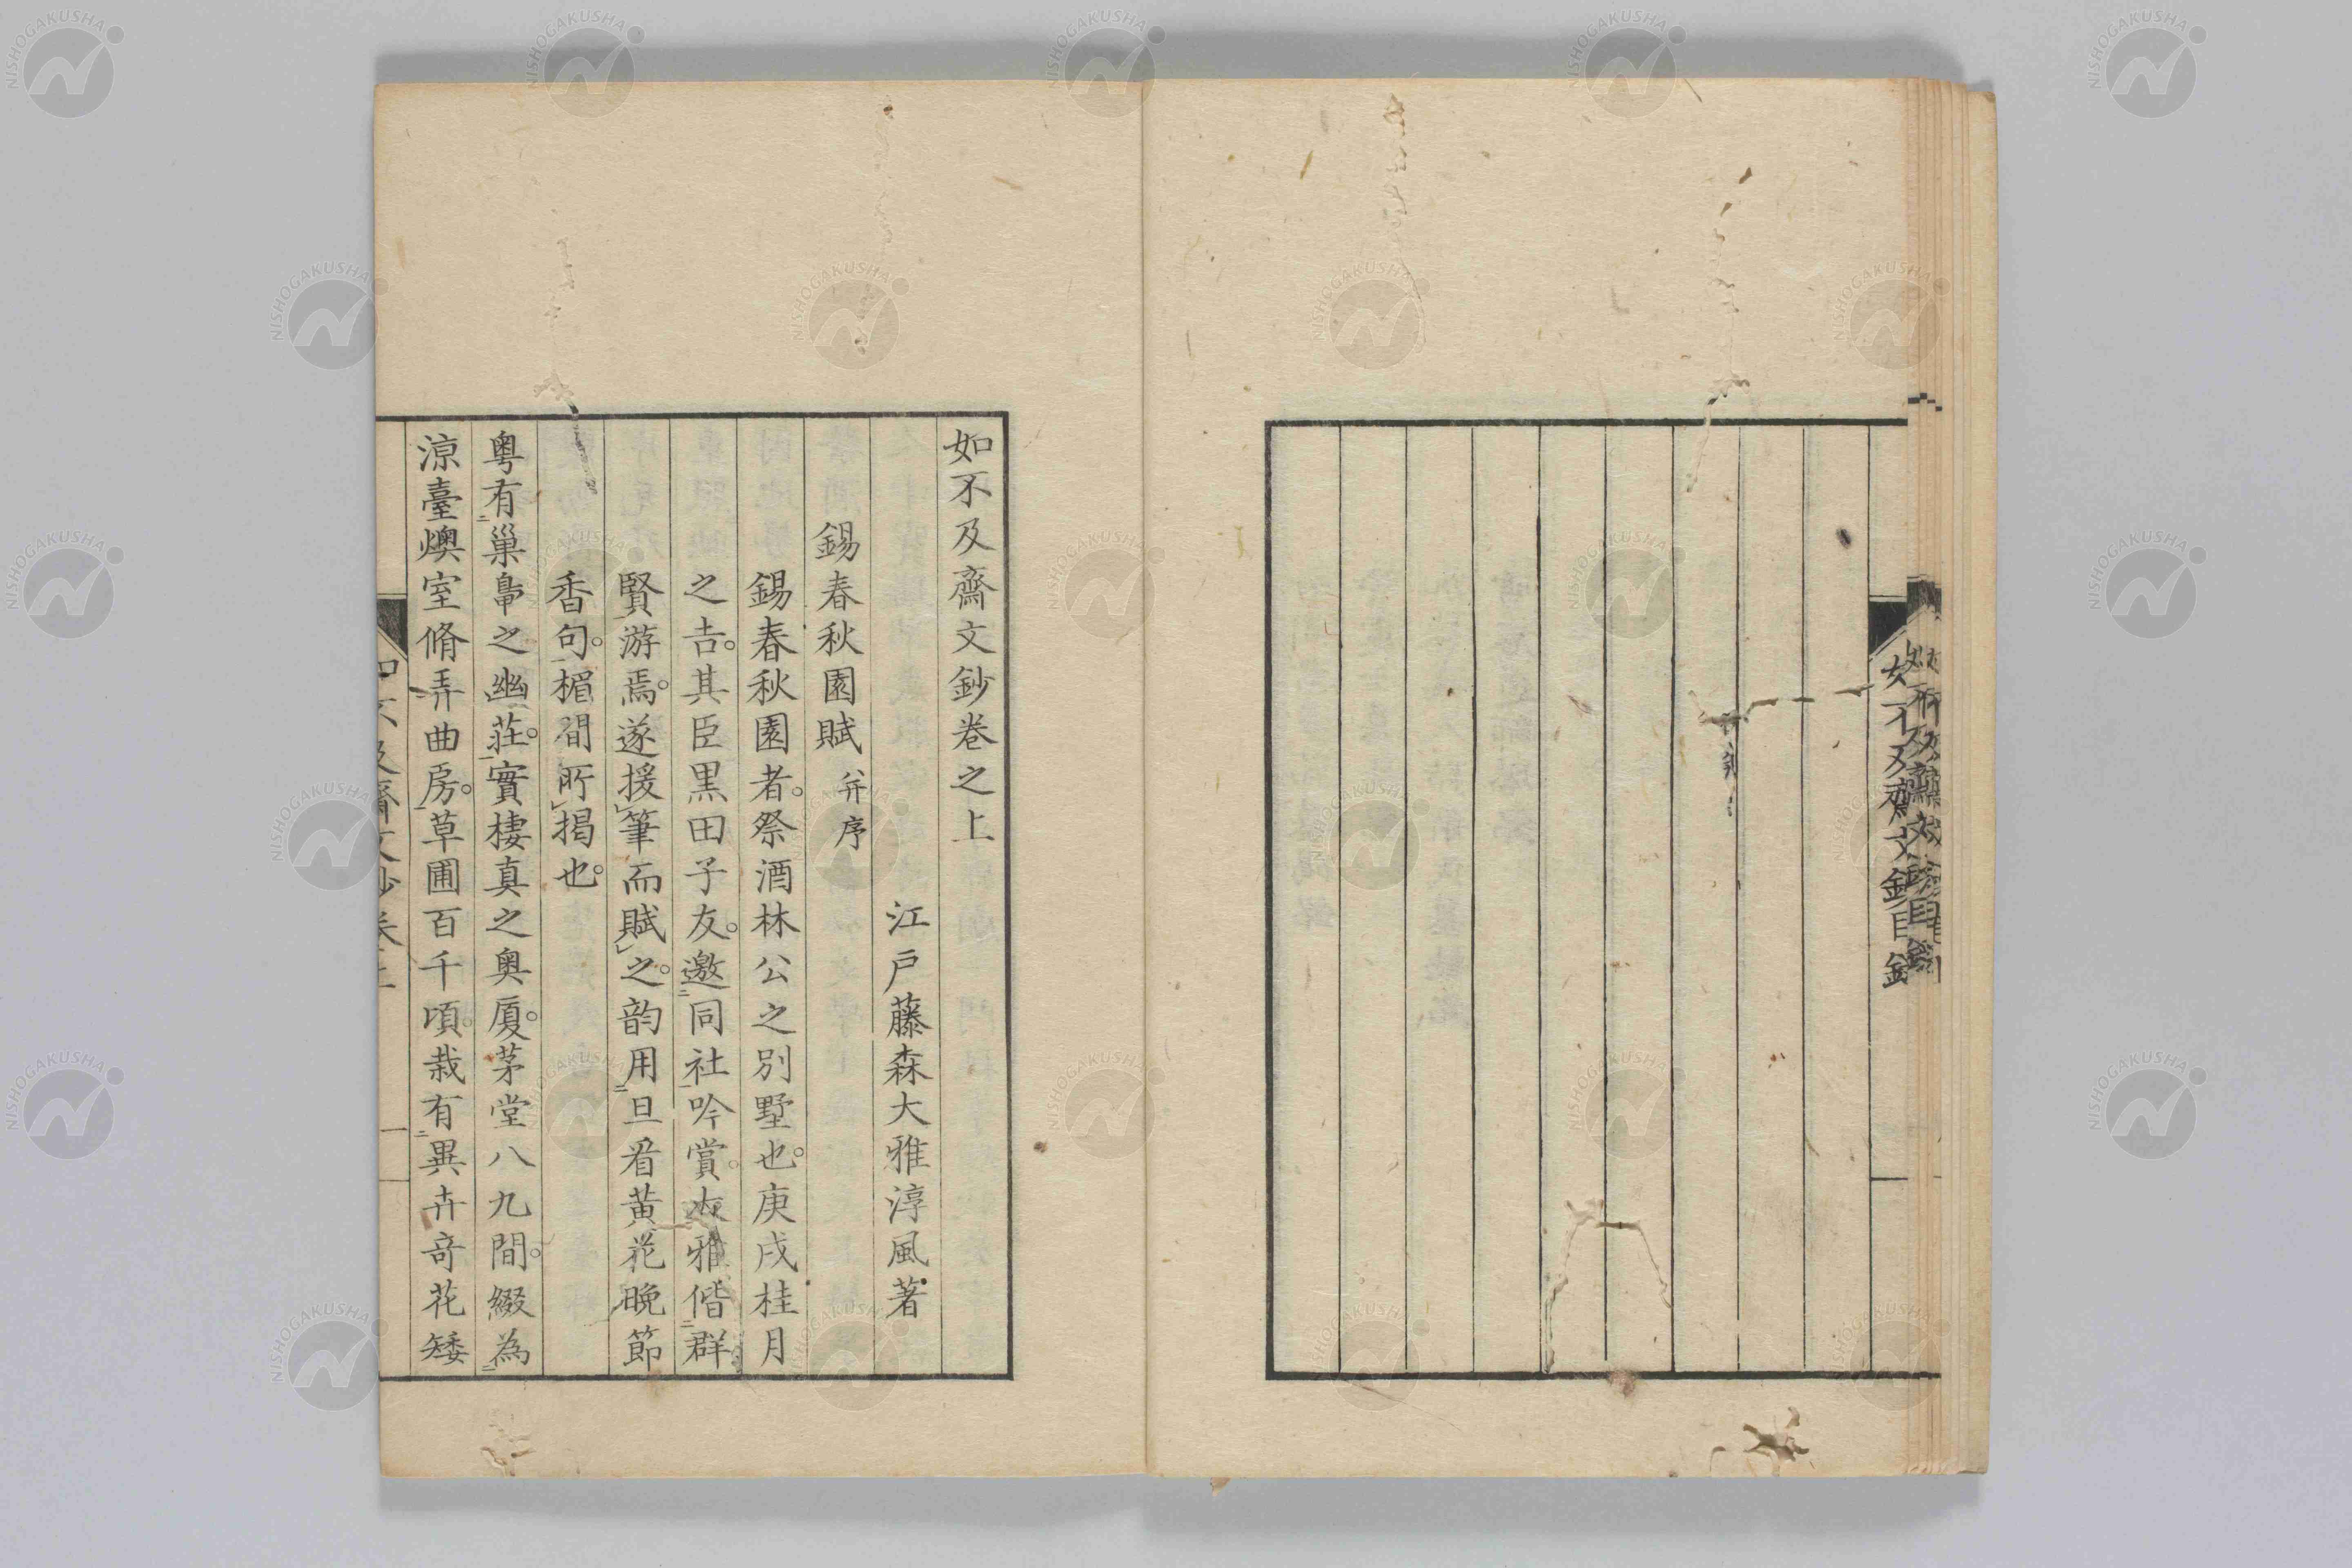 如不及齋文鈔卷之上
江戸藤森大雅淳風著
錫春秋園賦 幷序
錫春秋園者。祭酒林公之別墅也。庚戌桂月
之吉。其臣黒田子友。邀二同社一吟賞。大雅偕二群
賢游焉。遂援レ筆而賦レ之。韵用二旦看黄花晩節
香句。楣間所レ揭也。
粤有二巢鳧之幽莊一。實棲真之奧厦。茅堂八九間。綴為二
涼臺燠室脩弄曲房一。草圃百千頃。栽有二異卉竒花矮
如不及齋文鈔目錄